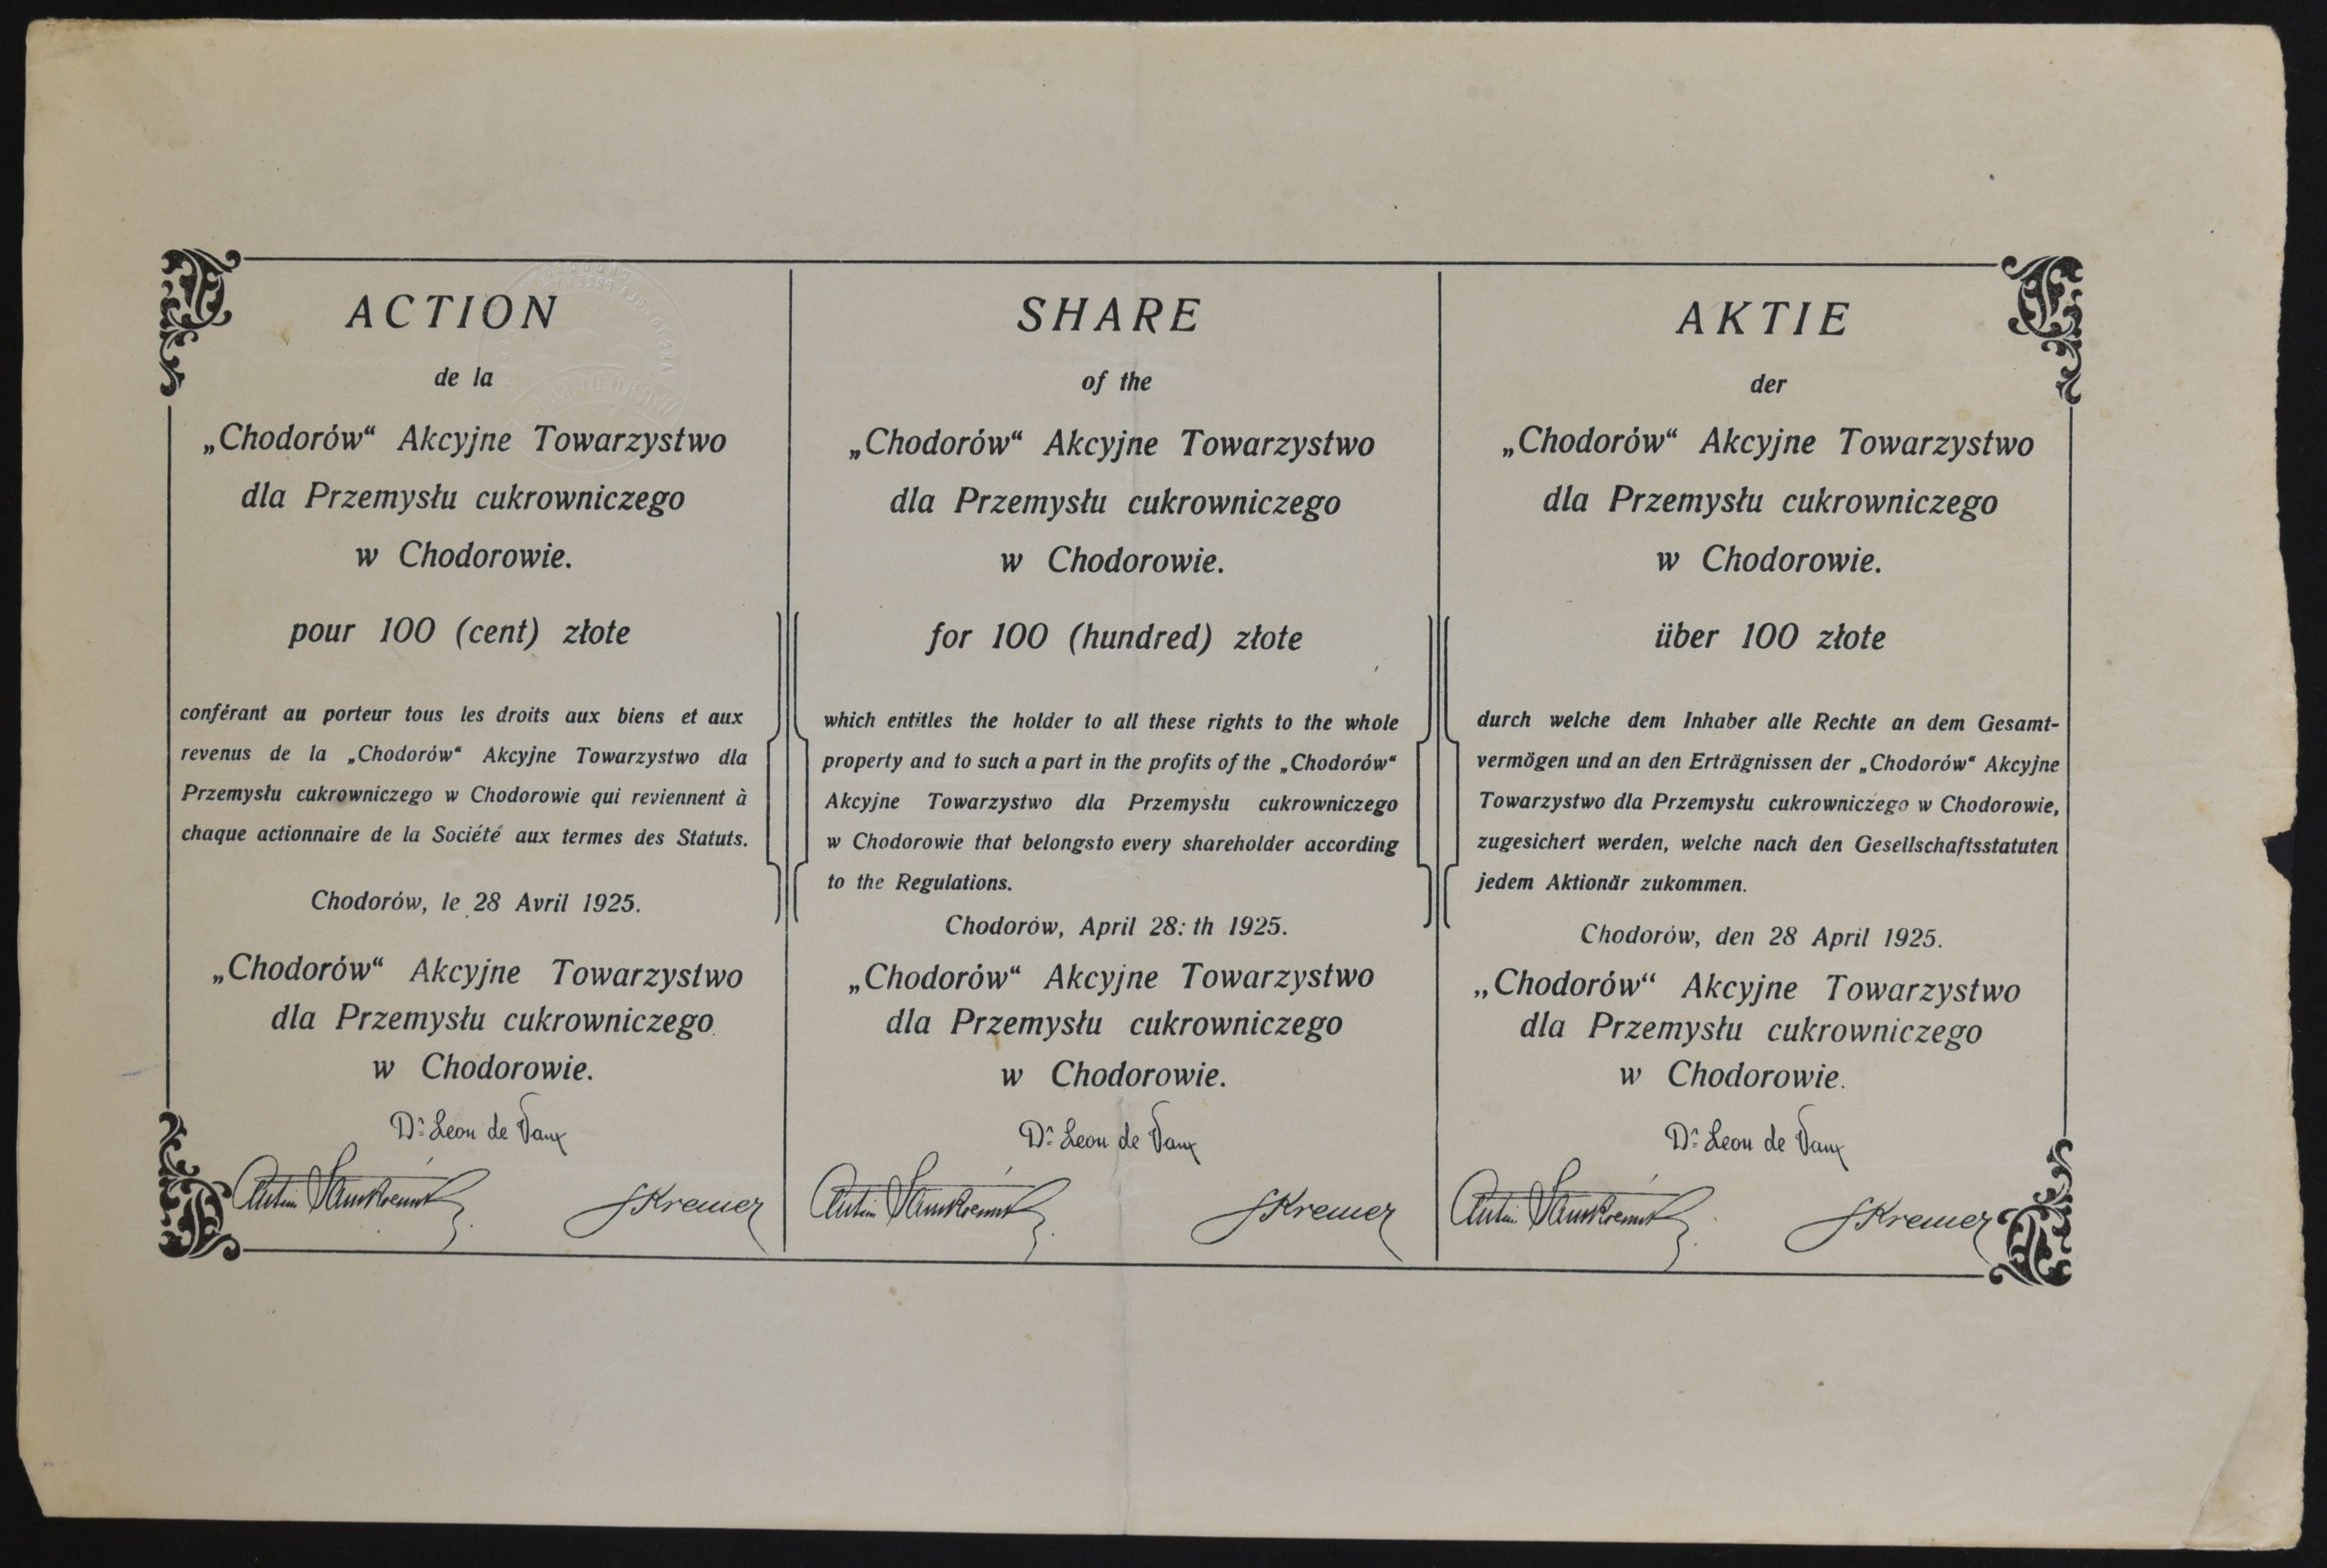 ACTION
de la
„Chodorów“ Akcyjne Towarzystwo
dla Przemysłu cukrowniczego
w Chodorowie.
pour 100 (cent) złote
conférant au porteur tous les droits aux biens et aux
revenus de la „Chodorów“ Akcyjne Towarzystwo dla
Przemysłu cukrowniczego w Chodorowie qui reviennent à
chaque actionnaire de la Société aux termes des Statuts.
Chodorów, le 28 Avril 1925.
„Chodorów“ Akcyjne Towarzystwo
dla Przemysłu cukrowniczego
w Chodorowie.
Dr Leon de Vaux
Kremer
SHARE
of the
„Chodorów“ Akcyjne Towarzystwo
dla Przemysłu cukrowniczego
w Chodorowie.
for 100 (hundred) złote
which entitles the holder to all these rights to the whole
property and to such a part in the profits of the „Chodorów“
Akcyjne Towarzystwo dla Przemysłu cukrowniczego
w Chodorowie that belongsto every shareholder according
to the Regulations.
Chodorów, April 28: th 1925.
„Chodorów“ Akcyjne Towarzystwo
dla Przemysłu cukrowniczego
w Chodorowie.
Dr Leon de Vaux
Kremer
AKTIE
der
„Chodorów“ Akcyjne Towarzystwo
dla Przemysłu cukrowniczego
w Chodorowie.
über 100 złote
durch welche dem Inhaber alle Rechte an dem Gesamt-
vermögen und an den Erträgnissen der „Chodorów“ Akcyjne
Towarzystwo dla Przemysłu cukrowniczego w Chodorowie,
zugesichert werden, welche nach den Gesellschaftsstatuten
jedem Aktionär zukommen.
Chodorów, den 28 April 1925.
„Chodorów“ Akcyjne Towarzystwo
dla Przemysłu cukrowniczego
w Chodorowie.
Dr Leon de Vaux
Kremer